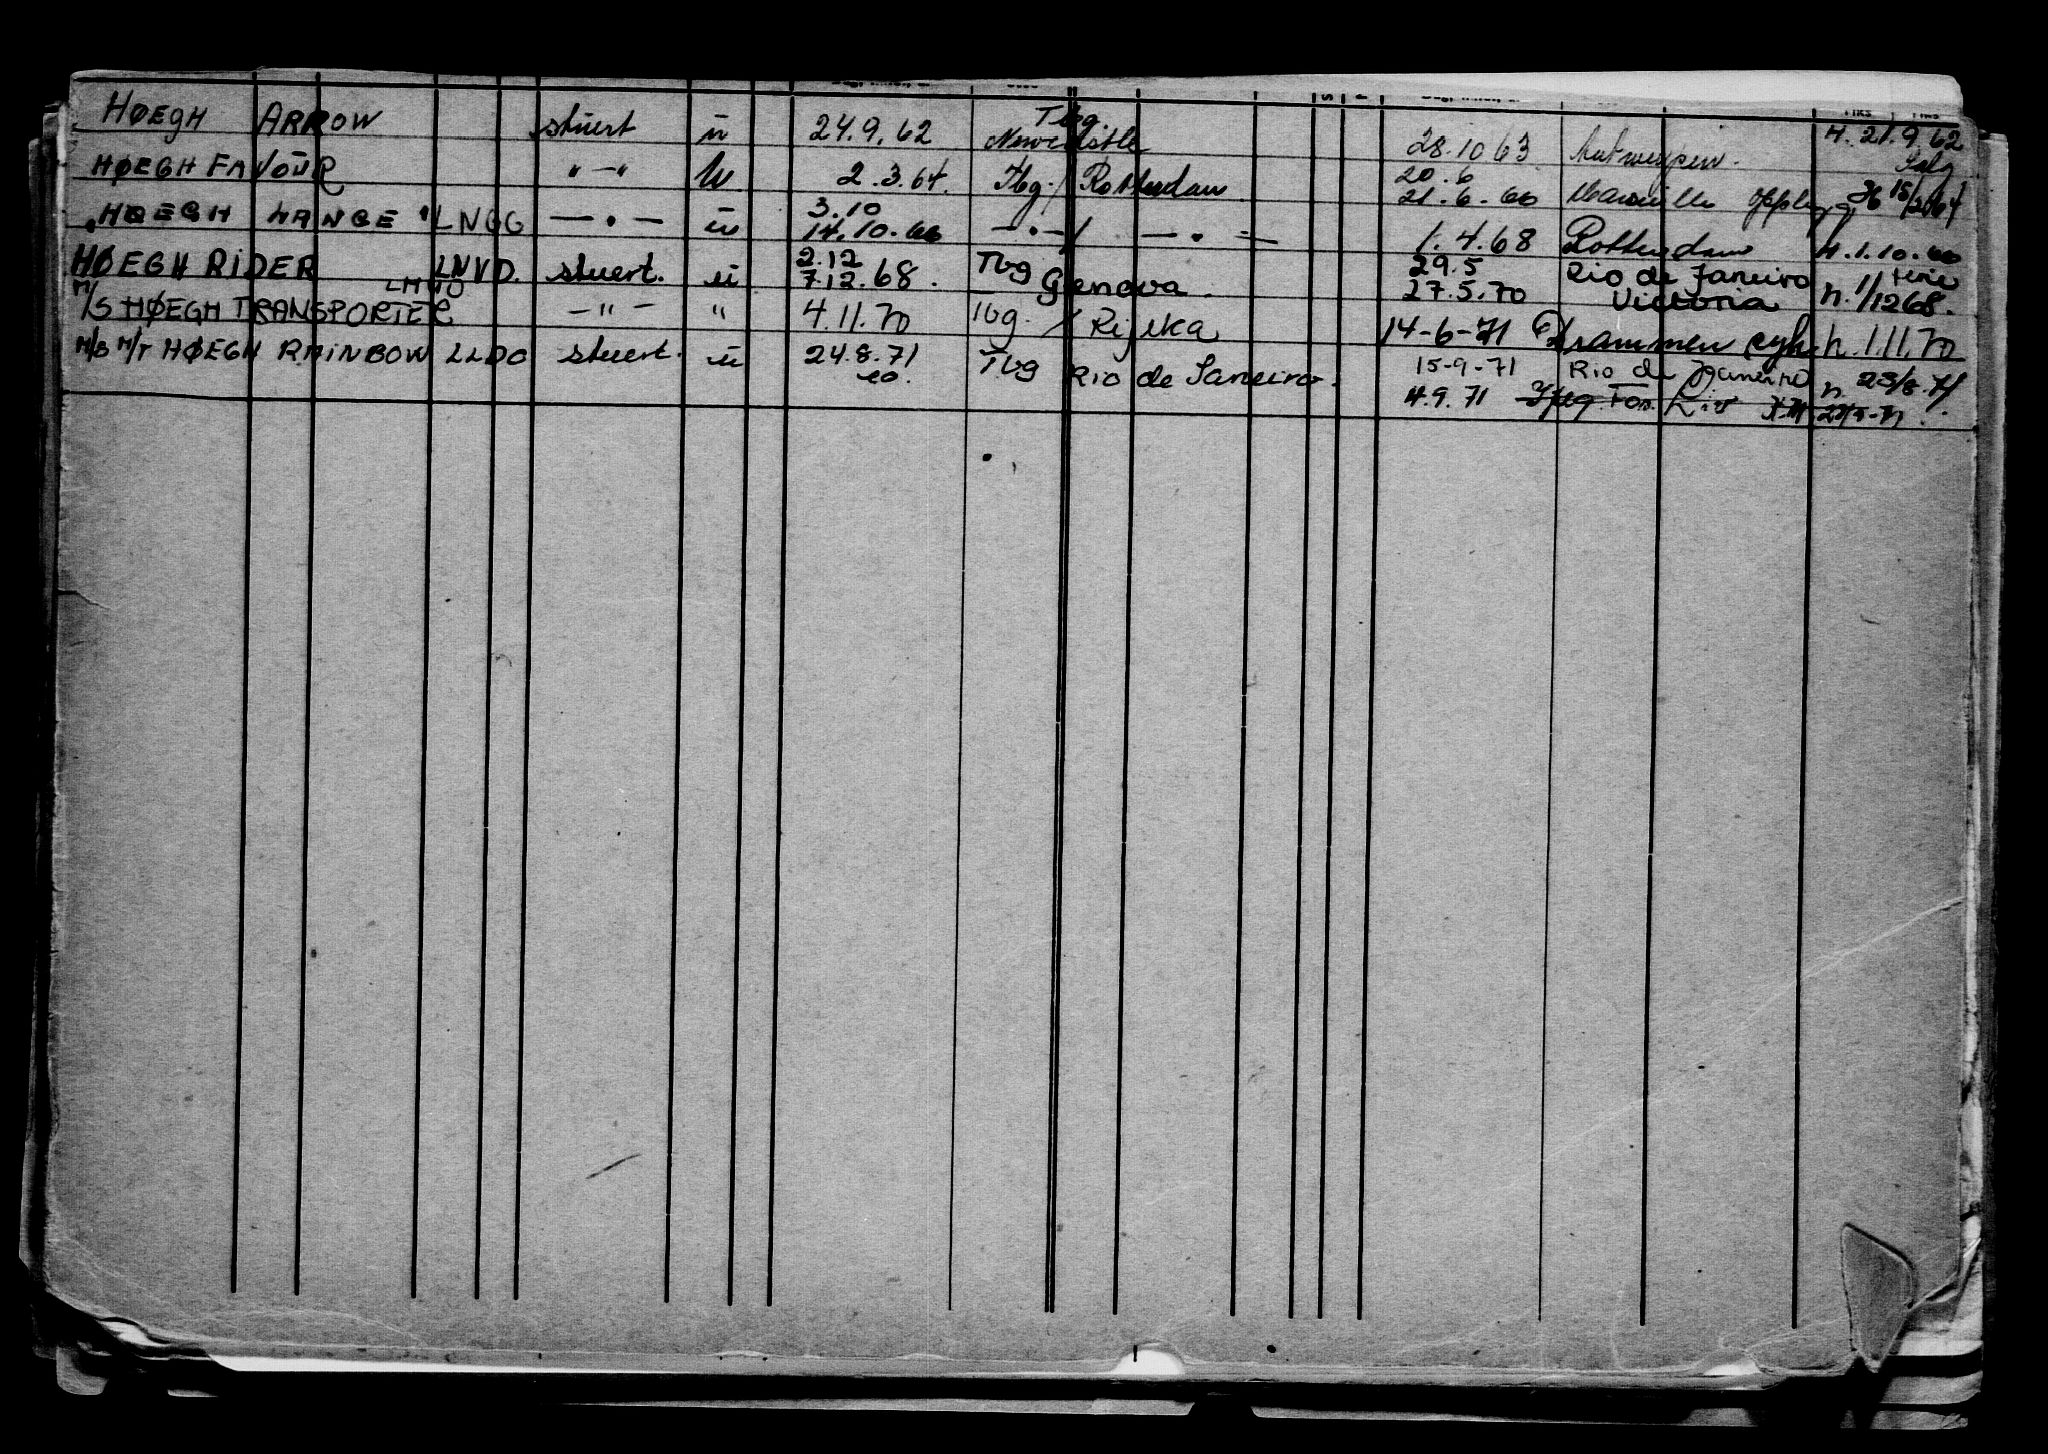 HØEGH ARROW stuert u 24.9.62 Tbg. Newcastle 28.10 63 Antwerpen. H. 21.9.62
HØEGH FAVOUR "—" u 2.3.64. Tbg. / Rotterdam 20.6 21.6.66 Marseille
"HØEGH LANGE" LNGG — . — u 3.10 14.10.66 — . — / — . — 1.4.68 Rotterdam H. 1.10.66
HØEGH RIDER LNVD. stuert. u 2.12 7.12.68. Tbg Genova. 29.5 27.5.70 Rio de Janeiro Victoria ferie h. 1/12 68.
M/S HØEGH TRANSPORTER —"— " 4.11.70 Tbg. / Rijeka 14-6-71 Drammen syk. h. 1.11.70
M/S M/T HØEGH RAINBOW LLDO stuert. u 24.8.71 Tbg Rio de Janeiro. 15-9-71 Rio de Janeiro h 23/8.71
4.9.71